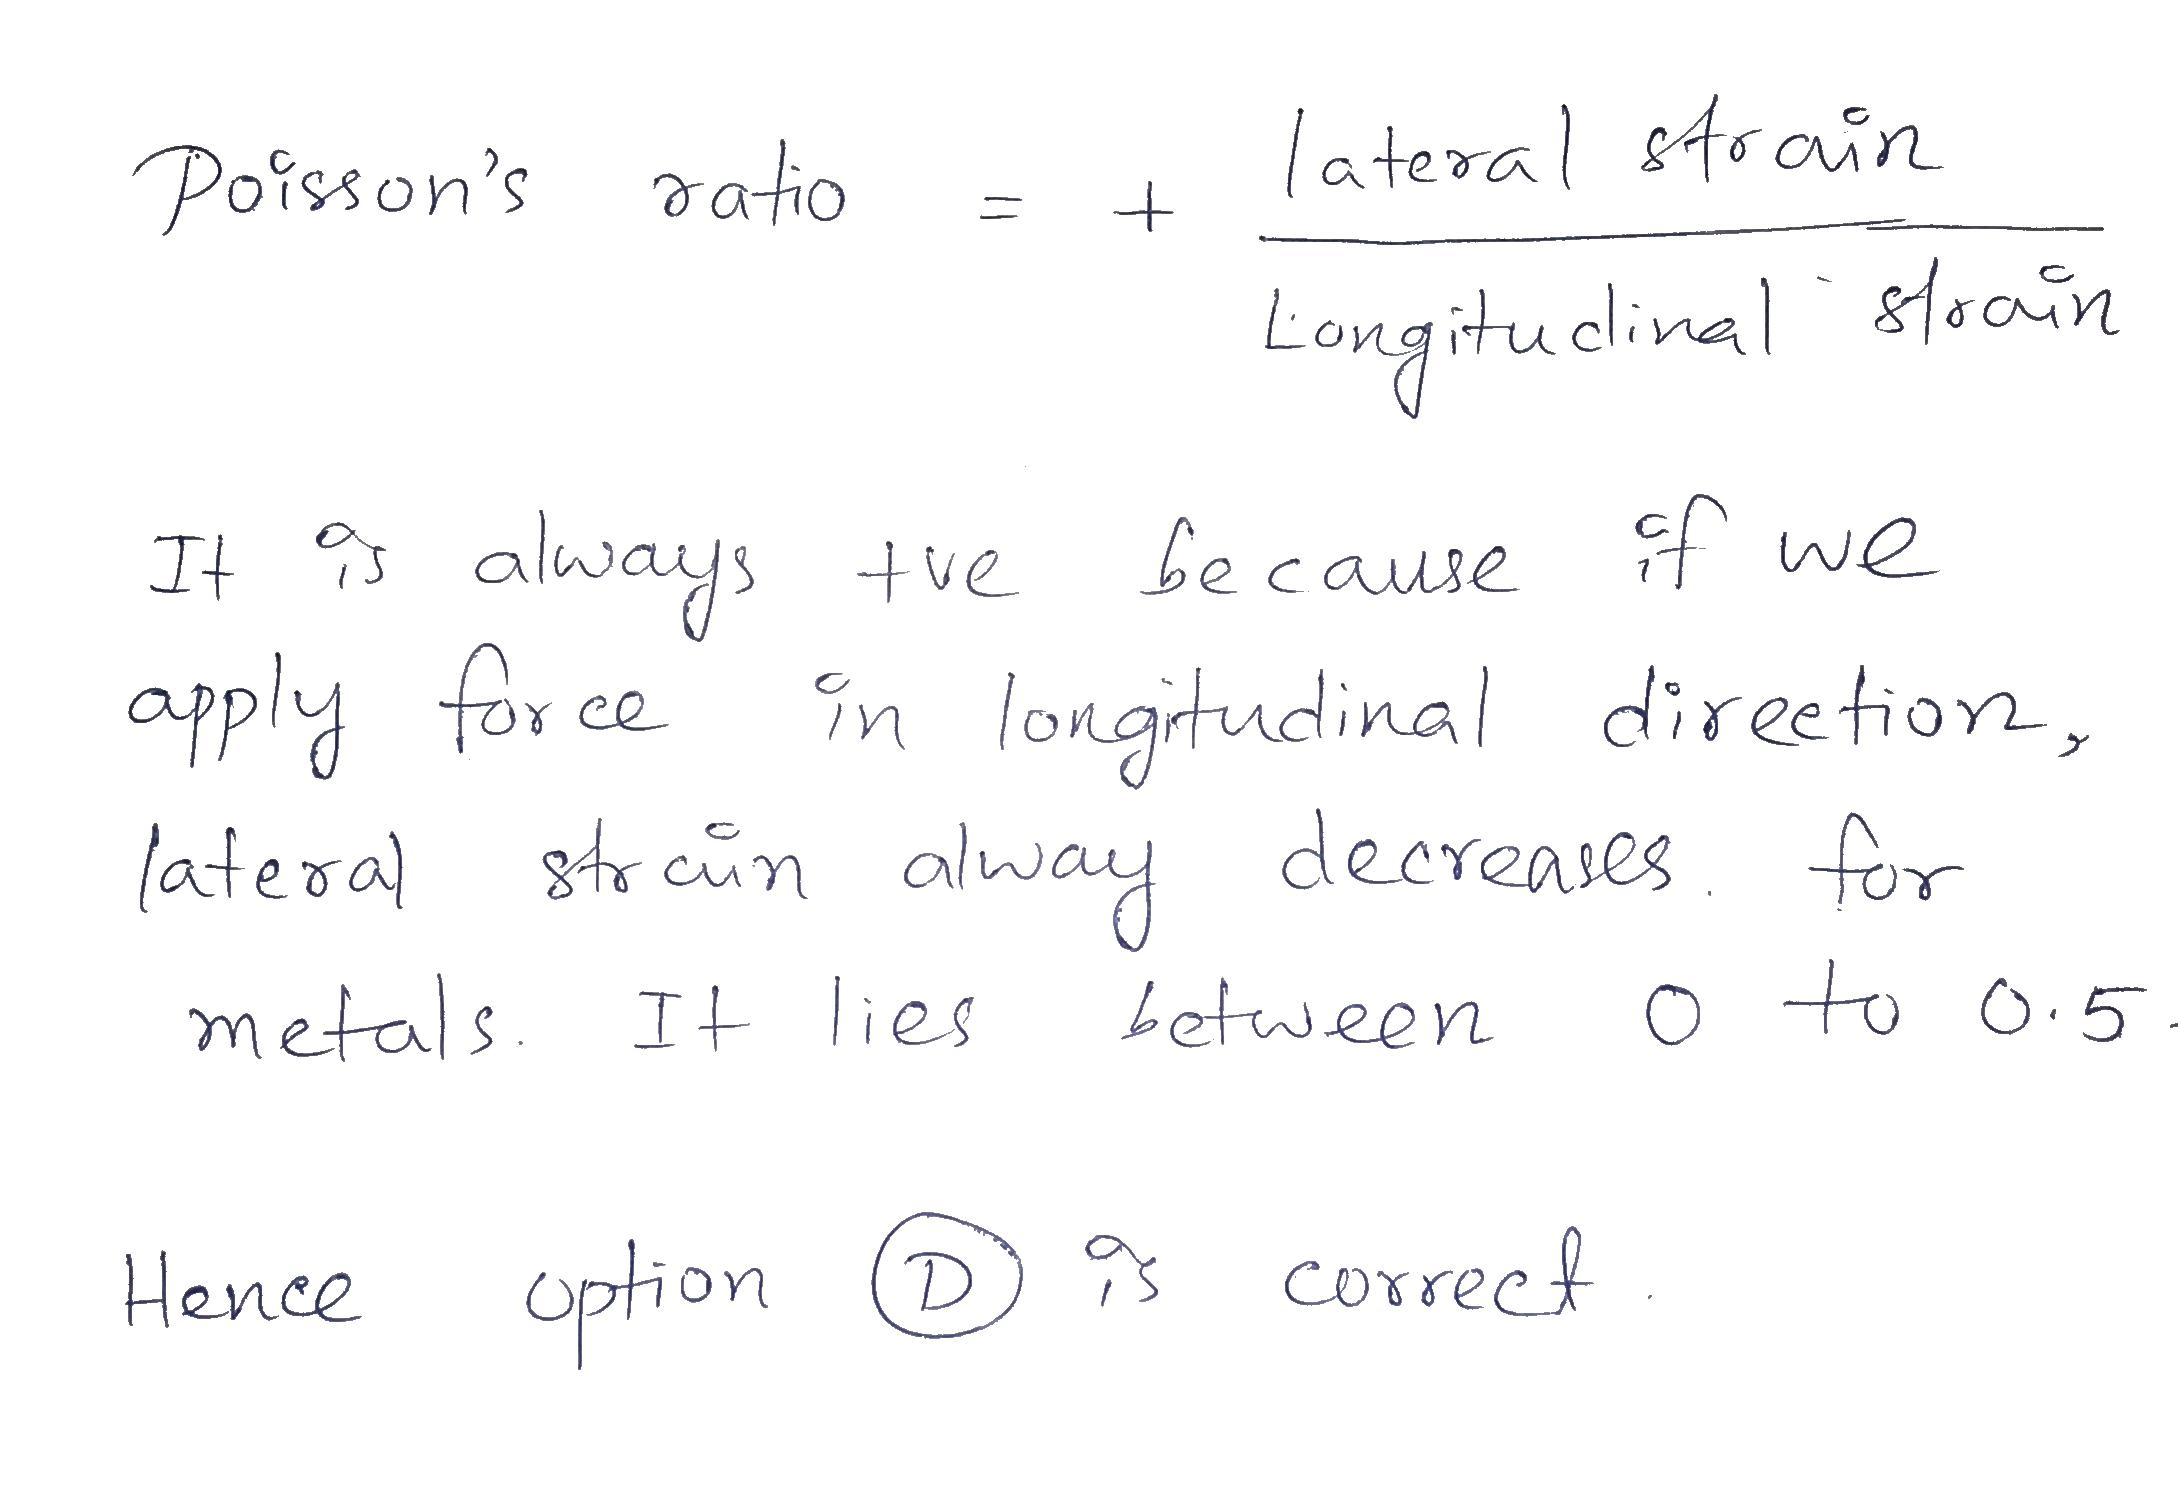 Poisson's ratio = + lateral strain
Longitudinal strain
It is always +ve because if we
apply force in longitudinal direction,
lateral strain alway decreases. for
metals. It lies between 0 to 0.5.
Hence option D is correct.